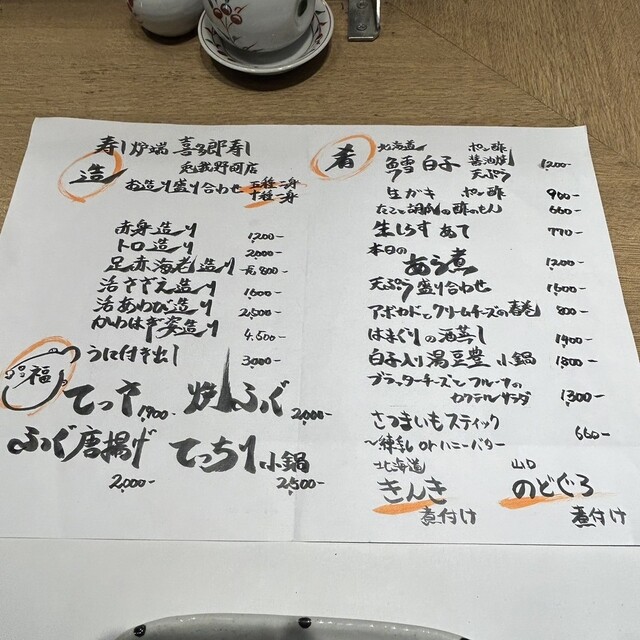 寿し炉端 喜多郎寿し
兎我野町店
造
お造り盛り合わせ 五種二身
十種二身
赤身造り 1,200-
トロ造り 2,000-
足赤海老造り 一尾 800-
活さざえ造り 1,500-
活あわび造り 2,500-
かわはぎ姿造り 4,500-
うに付き出し 3,000-
福
てっさ 1,900- 炉ふぐ 2,000-
ふぐ唐揚げ 2,000- てっちり小鍋 2,500-
肴
北海道 鱈白子 ポン酢 醤油焼 天ぷら 1,200-
生ガキ ポン酢 960-
たこと胡瓜の酢のもん 660-
生しらす あて 770-
本日の あら煮 1,200-
天ぷら盛り合わせ 1,600-
アボカドとクリームチーズの春巻 800-
はまぐりの酒蒸し 1,900-
白子入り湯豆腐 小鍋 1,800-
ブラータチーズとフルーツの
カクテルサラダ 1,300-
さつまいもスティック
〜練乳 or ハニーバター 660-
北海道 きんき 煮付け
山口 のどぐろ 煮付け